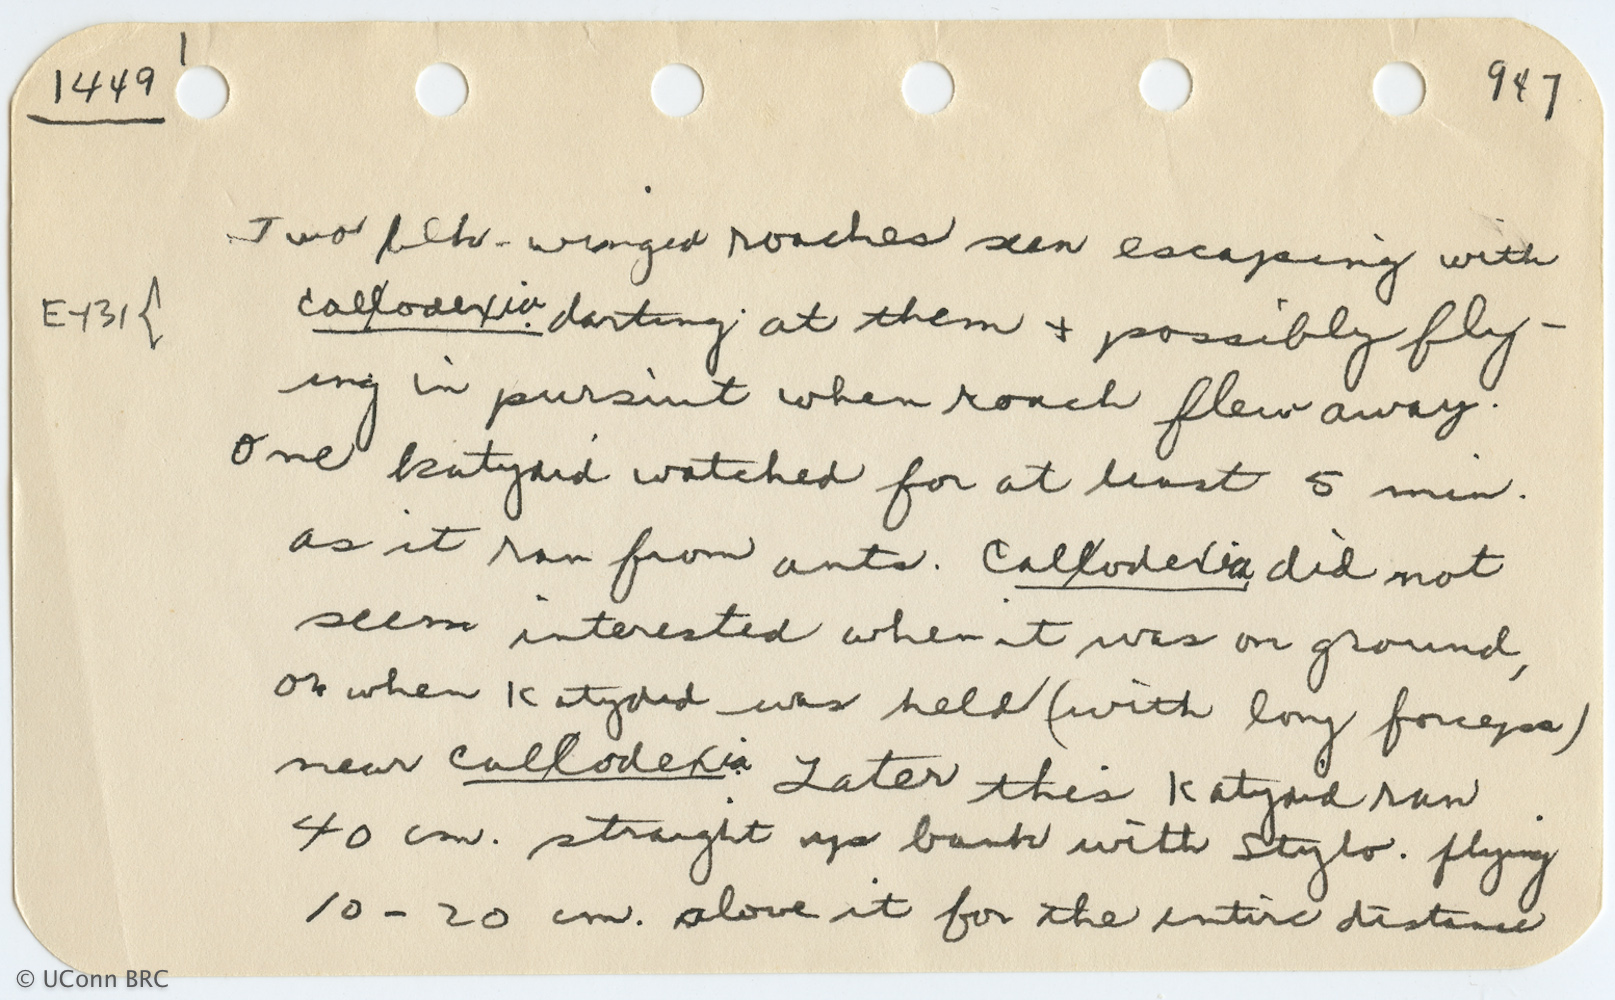 1449
947
Two blk-winged roaches seen escaping with
E-131{
Calodexia darting at them + possibly fly-
ing in pursuit when roach flew away.
One katydid watched for at least 5 min.
as it ran from ants. Calodexia did not
seem interested when it was on ground,
or when Katydid was held (with long forceps)
near Calodexia. Later this Katydid ran
40 cm. straight up bank with Stylo. flying
10-20 cm. above it for the entire distance
© UConn BRC